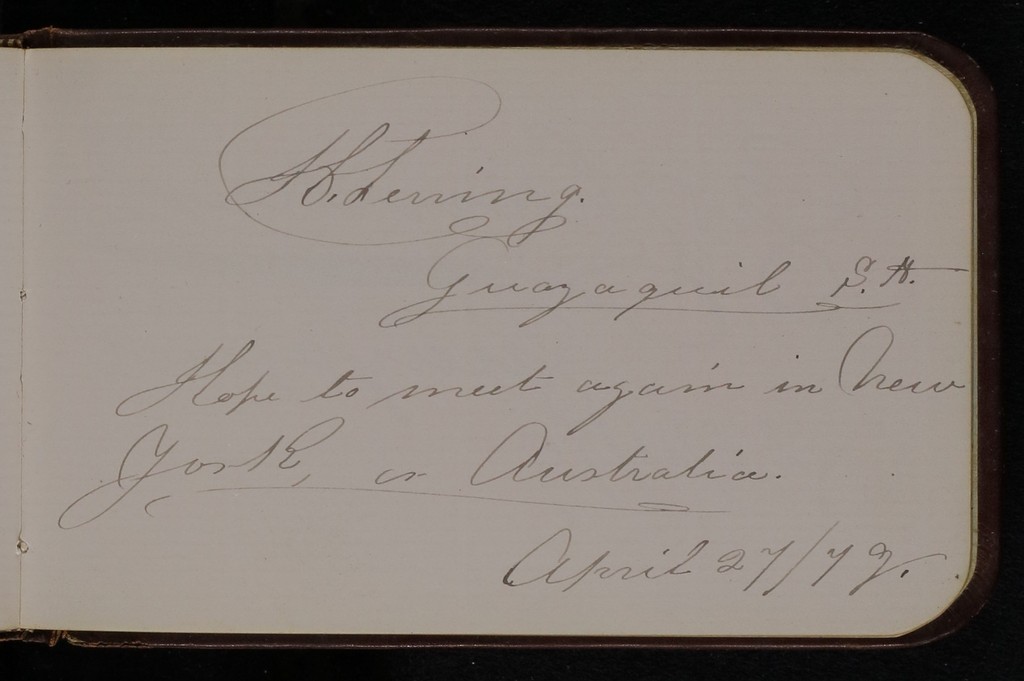 H. Lerring.
Guayaquil S.A.
Hope to meet again in New
York, or Australia.
April 27/79.